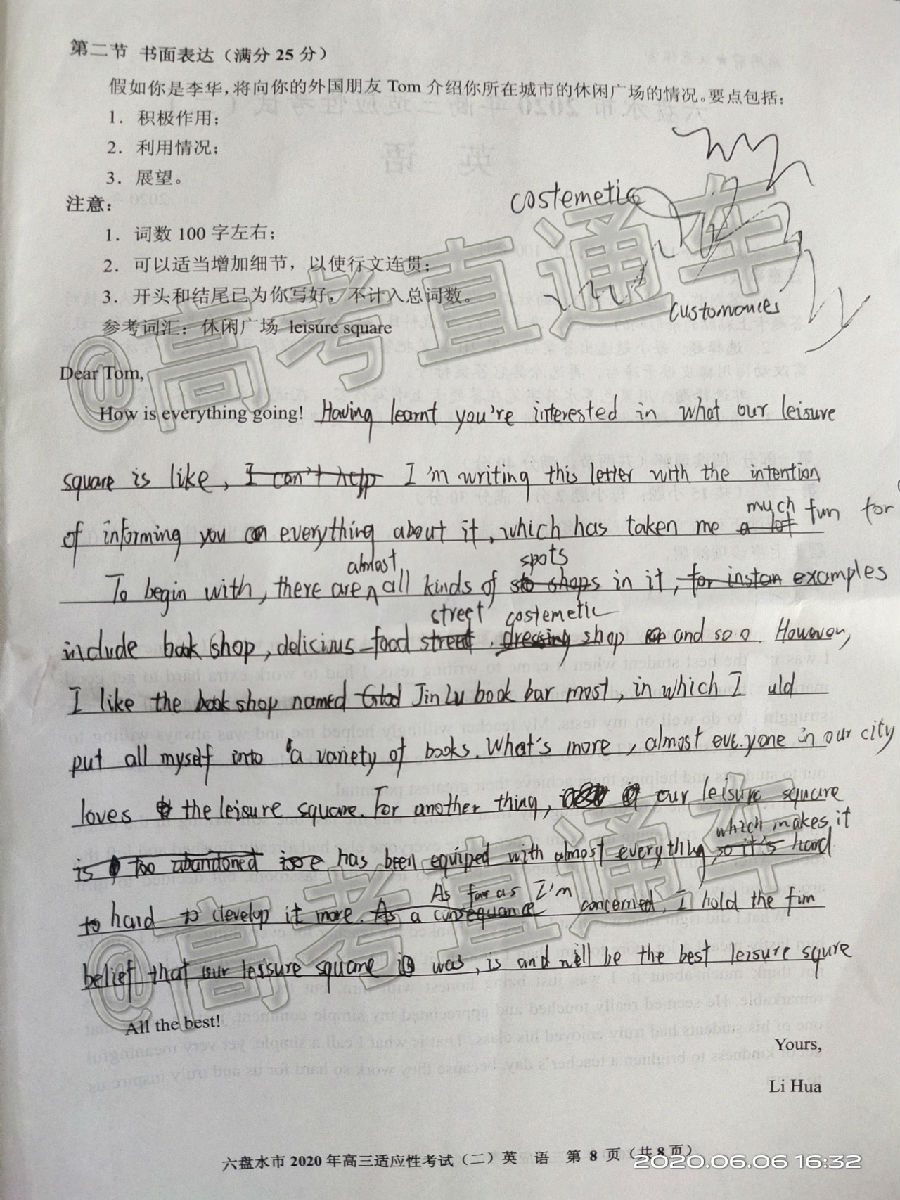 第二节 书面表达（满分 25 分）
假如你是李华,将向你的外国朋友 Tom 介绍你所在城市的休闲广场的情况。要点包括：
1．积极作用；
2．利用情况；
3．展望。
注意：
costemetic
1．词数 100 字左右；
2．可以适当增加细节，以使行文连贯；
3．开头和结尾已为你写好，不计入总词数。
customonies
参考词汇：休闲广场 leisure square
@高考直通车
Dear Tom,
How is everything going! Having learnt you're interested in what our leisure
square is like, I can't help I'm writing this letter with the intention
of informing you on everything about it, which has taken me a lot much fun for
To begin with, there are almost all kinds of sto shops spots in it, for instan examples
include book shop, delicious food street street, dressing costemetic shop and so o. However,
I like the book shop named Good JinLu book bar most, in which I uld
put all myself into a variety of books. What's more, almost eve.yone in our city
loves the leisure square. For another thing, our leisure square
is too abandoned has been equiped with almost everything, so it's hard which makes it
to hard to clevelop it more. As a consequance As far as I'm concerned, I hold the fim
belief that our leisure square is was, is and will be the best leisure squre
@高考直通车
All the best!
Yours,
Li Hua
六盘水市 2020 年高三适应性考试（二）英 语 第 8 页（共 8 页）
2020.06.06 16:32